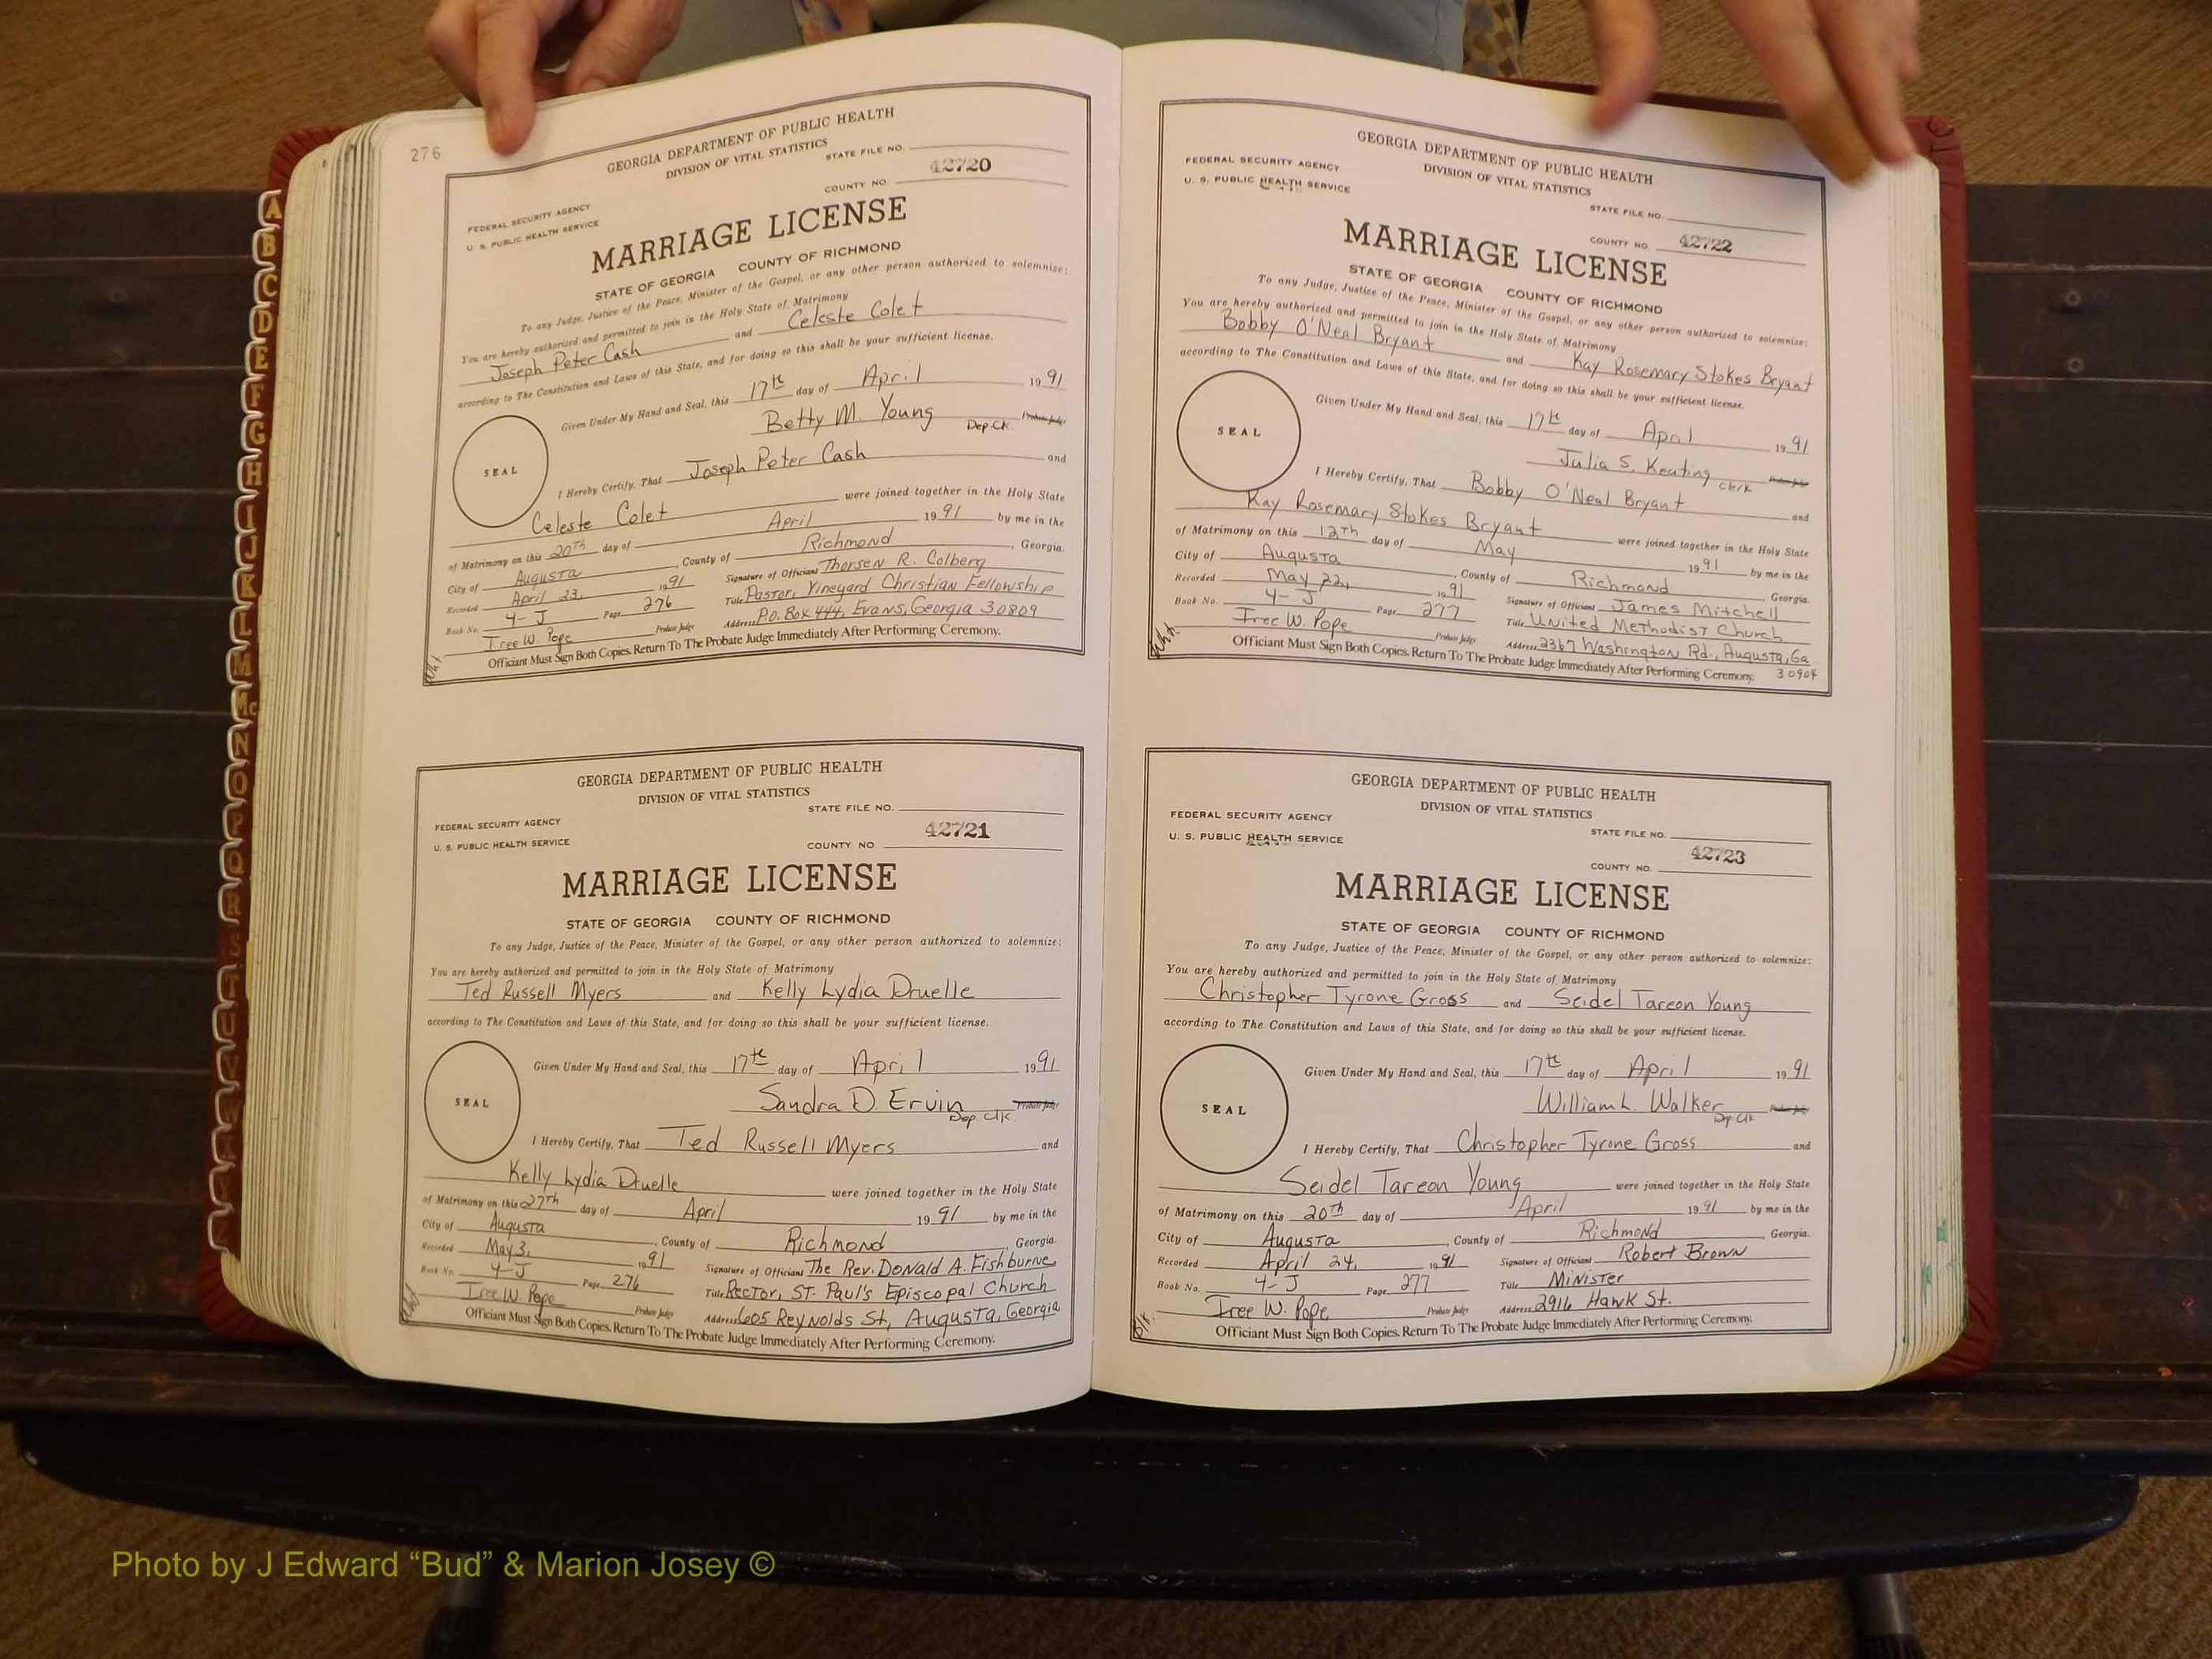 276
GEORGIA DEPARTMENT OF PUBLIC HEALTH
DIVISION OF VITAL STATISTICS
STATE FILE NO.
42720
COUNTY NO.
FEDERAL SECURITY AGENCY
U. S. PUBLIC HEALTH SERVICE
MARRIAGE LICENSE
STATE OF GEORGIA COUNTY OF RICHMOND
To any Judge, Justice of the Peace, Minister of the Gospel, or any other person authorized to solemnize:
You are hereby authorized and permitted to join in the Holy State of Matrimony
Joseph Peter Cash and Celeste Colet
according to The Constitution and Laws of this State, and for doing so this shall be your sufficient license.
Given Under My Hand and Seal, this 17th day of April 1991
Betty M. Young Dep. Ck. Probate Judge
SEAL
I Hereby Certify, That Joseph Peter Cash and
Celeste Colet were joined together in the Holy State
of Matrimony on this 20Th day of April 1991 by me in the
City of Augusta, County of Richmond, Georgia.
Recorded April 23, 1991 Signature of Officiant Thorsen R. Colberg
Book No. 4-J Page 276 Title Pastor, Vineyard Christian Fellowship
Iree W. Pope Probate Judge Address P.O. Box 444, Evans, Georgia 30809
Officiant Must Sign Both Copies. Return To The Probate Judge Immediately After Performing Ceremony.
GEORGIA DEPARTMENT OF PUBLIC HEALTH
DIVISION OF VITAL STATISTICS
STATE FILE NO.
FEDERAL SECURITY AGENCY
42721
U. S. PUBLIC HEALTH SERVICE
COUNTY NO.
MARRIAGE LICENSE
STATE OF GEORGIA COUNTY OF RICHMOND
To any Judge, Justice of the Peace, Minister of the Gospel, or any other person authorized to solemnize:
You are hereby authorized and permitted to join in the Holy State of Matrimony
Ted Russell Myers and Kelly Lydia Druelle
according to The Constitution and Laws of this State, and for doing so this shall be your sufficient license.
Given Under My Hand and Seal, this 17th day of April 1991
Sandra D. Ervin Dep Clk Probate Judge
SEAL
I Hereby Certify, That Ted Russell Myers and
Kelly Lydia Druelle were joined together in the Holy State
of Matrimony on this 27Th day of April 1991 by me in the
City of Augusta, County of Richmond Georgia.
Recorded May 3, 1991 Signature of Officiant The Rev. Donald A. Fishburne,
Book No. 4-J Page 276 Title Rector, ST. Paul's Episcopal Church
Iree W. Pope Probate Judge Address 605 Reynolds St, Augusta, Georgia
Officiant Must Sign Both Copies. Return To The Probate Judge Immediately After Performing Ceremony.
GEORGIA DEPARTMENT OF PUBLIC HEALTH
FEDERAL SECURITY AGENCY
DIVISION OF VITAL STATISTICS
U. S. PUBLIC HEALTH SERVICE
STATE FILE NO.
COUNTY NO. 42722
MARRIAGE LICENSE
STATE OF GEORGIA COUNTY OF RICHMOND
To any Judge, Justice of the Peace, Minister of the Gospel, or any other person authorized to solemnize:
You are hereby authorized and permitted to join in the Holy State of Matrimony
Bobby O'Neal Bryant and Kay Rosemary Stokes Bryant
according to The Constitution and Laws of this State, and for doing so this shall be your sufficient license.
Given Under My Hand and Seal, this 17th day of April 1991
Julia S. Keating Clerk Probate Judge
SEAL
I Hereby Certify, That Bobby O'Neal Bryant and
Kay Rosemary Stokes Bryant were joined together in the Holy State
of Matrimony on this 12Th day of May 1991 by me in the
City of Augusta, County of Richmond Georgia.
Recorded May 22, 1991 Signature of Officiant James Mitchell
Book No. 4-J Page 277 Title United Methodist Church
Iree W. Pope Probate Judge Address 2367 Washington Rd., Augusta, Ga
30904
Officiant Must Sign Both Copies. Return To The Probate Judge Immediately After Performing Ceremony.
GEORGIA DEPARTMENT OF PUBLIC HEALTH
DIVISION OF VITAL STATISTICS
FEDERAL SECURITY AGENCY
STATE FILE NO.
U. S. PUBLIC HEALTH SERVICE
42723
COUNTY NO.
MARRIAGE LICENSE
STATE OF GEORGIA COUNTY OF RICHMOND
To any Judge, Justice of the Peace, Minister of the Gospel, or any other person authorized to solemnize:
You are hereby authorized and permitted to join in the Holy State of Matrimony
Christopher Tyrone Gross and Seidel Tareon Young
according to The Constitution and Laws of this State, and for doing so this shall be your sufficient license.
Given Under My Hand and Seal, this 17th day of April 1991
William L. Walker Dep. Clk Probate Judge
SEAL
I Hereby Certify, That Christopher Tyrone Gross and
Seidel Tareon Young were joined together in the Holy State
of Matrimony on this 20Th day of April 1991 by me in the
City of Augusta, County of Richmond Georgia.
Recorded April 24, 1991 Signature of Officiant Robert Brown
Book No. 4-J Page 277 Title Minister
Iree W. Pope Probate Judge Address 2916 Hawk St.
Officiant Must Sign Both Copies. Return To The Probate Judge Immediately After Performing Ceremony.
A
B
C
D
E
F
G
H
I
J
K
L
M
Mc
N
O
P
Q
R
S
T
U
V
W
Photo by J Edward “Bud” & Marion Josey ©